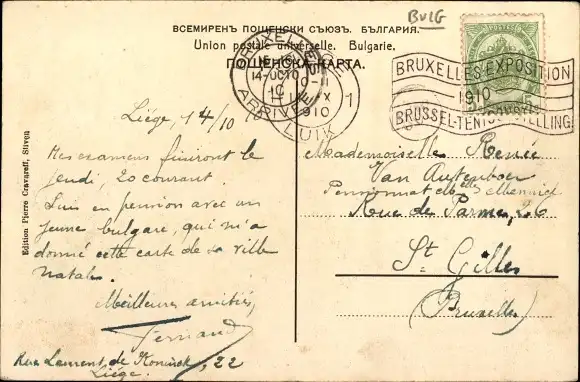 BULG
ВСЕМИРЕНЪ ПОЩЕНСКИ СЪЮЗЪ. БЪЛГАРИЯ.
Union postale universelle. Bulgarie.
ПОЩЕНСКА КАРТА.
BRUXELLES
14-OCTO
10
ARRIVÉE
LUIK
1
X
910
BRUXELLES EXPOSITION
1910
BRUSSEL-TENTOONSTELLING
Liége, 14/10
Mes examens finiront le
jeudi, 20 courant
Suis en pension avec un
jeune bulgare, qui m'a
donné cette carte de sa ville
natale.
Meilleures amitiés,
Fernand
Rue Laurent de Koninck, 22
Liége.
Mademoiselle Renée
Van
Pensionnat Melles
Rue de Parme, 26
St Gilles
(Bruxelles)
Edition Pierre Cravaroff, Sliven